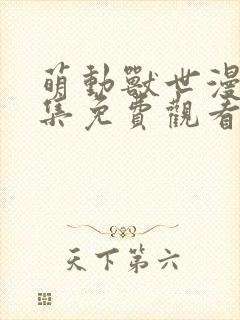 萌動獸世漫
集免費觀看
天下第六